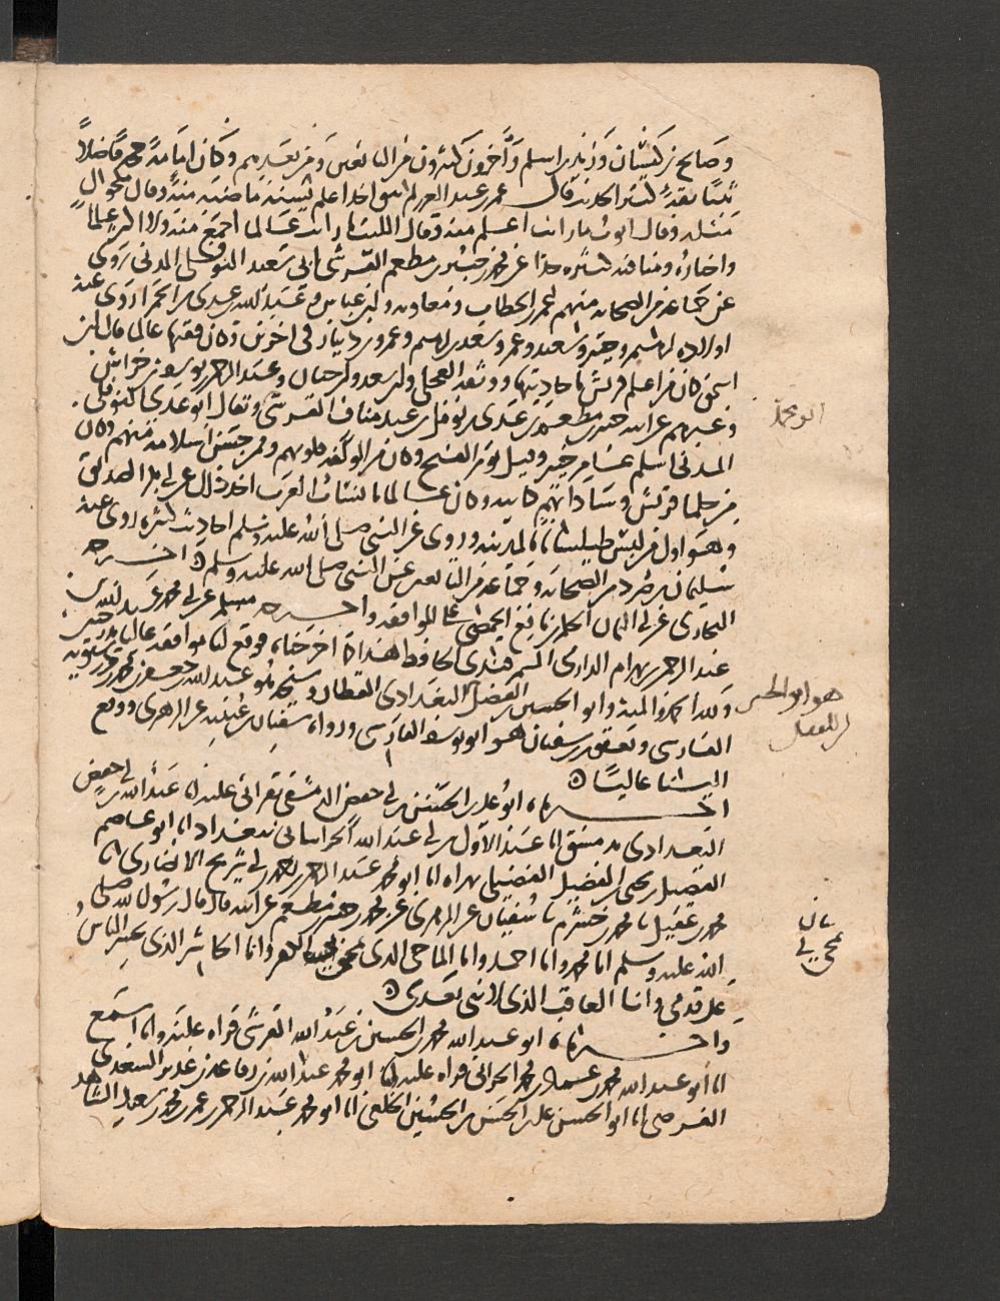 وصالح بن كيسان وزيد بن اسلم وآخرون كثيرون من التابعين ومن بعدهم وكان اماما حجة فاضلا
ثبتا ثقة كثير الحديث قال عمر بن عبد العزيز لم يبق احد اعلم بسنة ماضية منه وقال مكحول
مثله وقال ايوب ما رايت اعلم منه وقال الليث ما رايت عالما اجمع منه ولا اكثر علما
واخباره ومناقبه كثيرة جدا عن محمد بن جبير بن مطعم القرشي ابي سعيد النوفلي المدني روى
عن جماعة من الصحابة منهم عمر بن الخطاب ومعاوية وابن عباس وعبد الله بن عدي بن الحمرا روى عنه
اولاده ابراهيم وجبير وسعيد وعمر وسعد بن ابراهيم وعمرو بن دينار في اخرين وكان فقيها عالما قال ابن
اسحق كان من اعلم قريش باحاديثها ووثقه العجلي وابن سعد وابن حبان وعبد الرحمن بن يوسف بن خراش
وغيرهم عن ابيه جبير بن مطعم بن عدي بن نوفل بن عبد مناف القرشي ويقال ابو عدي النوفلي
المدني اسلم عام خيبر وقيل يوم الفتح وكان من المولفة قلوبهم وممن حسن اسلامه منهم وكان
من حلما قريش وساداتهم وكان عالما بانساب العرب اخذ ذلك عن ابي بكر الصديق
وهو اول من لبس طيلسانا بالمدينة وروى عن النبي صلى الله عليه وسلم احاديث كثيرة روى عنه
سليمان بن صرد من الصحابة وجماعة من التابعين عن النبي صلى الله عليه وسلم اخرجه
البخاري عن ابي اليمان الحكم بن نافع الحمصي على الموافقة واخرجه مسلم عن ابي محمد عبد الله بن
عبد الرحمن بن بهرام الدارمي السمرقندي الحافظ هذا كما اخرجناه فوقع لنا موافقة عالية
ولله الحمد والمنة وابو الحسين بن الفضل البغدادي القطان وشيخه هو عبد الله بن جعفر بن درستويه
الفارسي ويعقوب بن سفيان هو ابو يوسف الفارسي ورواه سفيان بن عيينة عن الزهري ووقع
الينا عاليا
اخبرناه ابو علي الحسن بن ابي حفص الدمشقي بقراتي عليه انا عبد الله بن ابي حفص
البغدادي بدمشق انا عبد الاول بن ابي عبد الله الخراساني ببغداد انا ابو عاصم
الفضيل بن يحيى بن الفضيل الفضيلي بهراة انا ابو محمد عبد الرحمن بن احمد بن ابي شريح الانصاري انا
محمد بن عقيل نا محمد بن خشرم نا سفيان عن الزهري عن محمد بن جبير بن مطعم عن ابيه قال قال رسول الله صلى
الله عليه وسلم انا محمد وانا احمد وانا الماحي الذي يمحى بي الكفر وانا الحاشر الذي يحشر الناس
على قدمي وانا العاقب الذي لا نبي بعدي
واخبرناه ابو عبد الله محمد بن الحسين بن عبد الله القرشي قراه عليه وانا اسمع
انا ابو عبد الله محمد بن عماد بن محمد الحراني قراه عليه انا ابو محمد عبد الله بن رفاعة بن غدير السعدي
الفرضي انا ابو الحسن علي بن الحسن بن الحسين الخلعي انا ابو محمد عبد الرحمن بن عمر بن محمد بن سعيد الشاهد
ابو محمد
هو ابو الحسين
ابن الفضل
بيان
يمحى بي